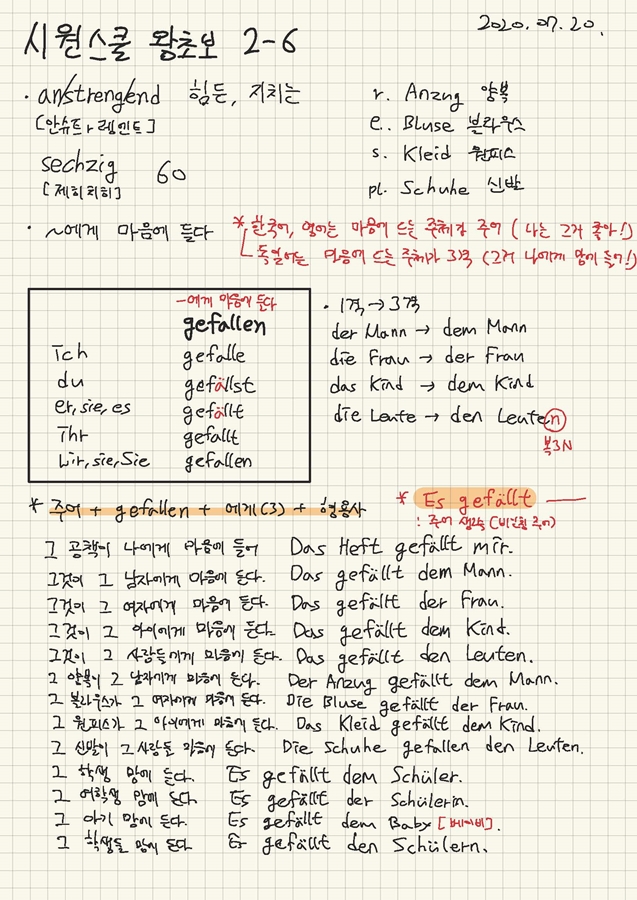 시원스쿨 왕초보 2-6
2020.07.20.
· an/streng/end 힘든, 지치는
[안슈트ㅏ렝엔트]
sechzig 60
[제히치히]
r. Anzug 양복
e. Bluse 블라우스
s. Kleid 원피스
pl. Schuhe 신발
· ~에게 마음에 들다
* 한국어, 영어는 마음에 드는 주체가 주어 (나는 그거 좋아!)
독일어는 마음에 드는 주체가 3격 (그거 나에게 맘에 들어!)
-에게 마음에 든다
gefallen
ich gefalle
du gefällst
er, sie, es gefällt
ihr gefallt
wir, sie, Sie gefallen
· 1격 → 3격
der Mann → dem Mann
die Frau → der Frau
das Kind → dem Kind
die Leute → den Leuten
복3N
* 주어 + gefallen + 에게(3) + 형용사
* Es gefällt
: 주어 생략 (비인칭 주어)
그 공책이 나에게 마음에 들어 Das Heft gefällt mir.
그것이 그 남자에게 마음에 든다. Das gefällt dem Mann.
그것이 그 여자에게 마음에 든다. Das gefällt der Frau.
그것이 그 아이에게 마음에 든다. Das gefällt dem Kind.
그것이 그 사람들에게 마음에 든다. Das gefällt den Leuten.
그 양복이 그 남자에게 마음에 든다. Der Anzug gefällt dem Mann.
그 블라우스가 그 여자에게 마음에 든다. Die Bluse gefällt der Frau.
그 원피스가 그 아이에게 마음에 든다. Das Kleid gefällt dem Kind.
그 신발이 그 사람들 마음에 든다. Die Schuhe gefallen den Leuten.
그 학생 맘에 든다. Es gefällt dem Schüler.
그 여학생 맘에 든다. Es gefällt der Schülerin.
그 아기 맘에 든다. Es gefällt dem Baby [베이비].
그 학생들 맘에 든다 Es gefällt den Schülern.